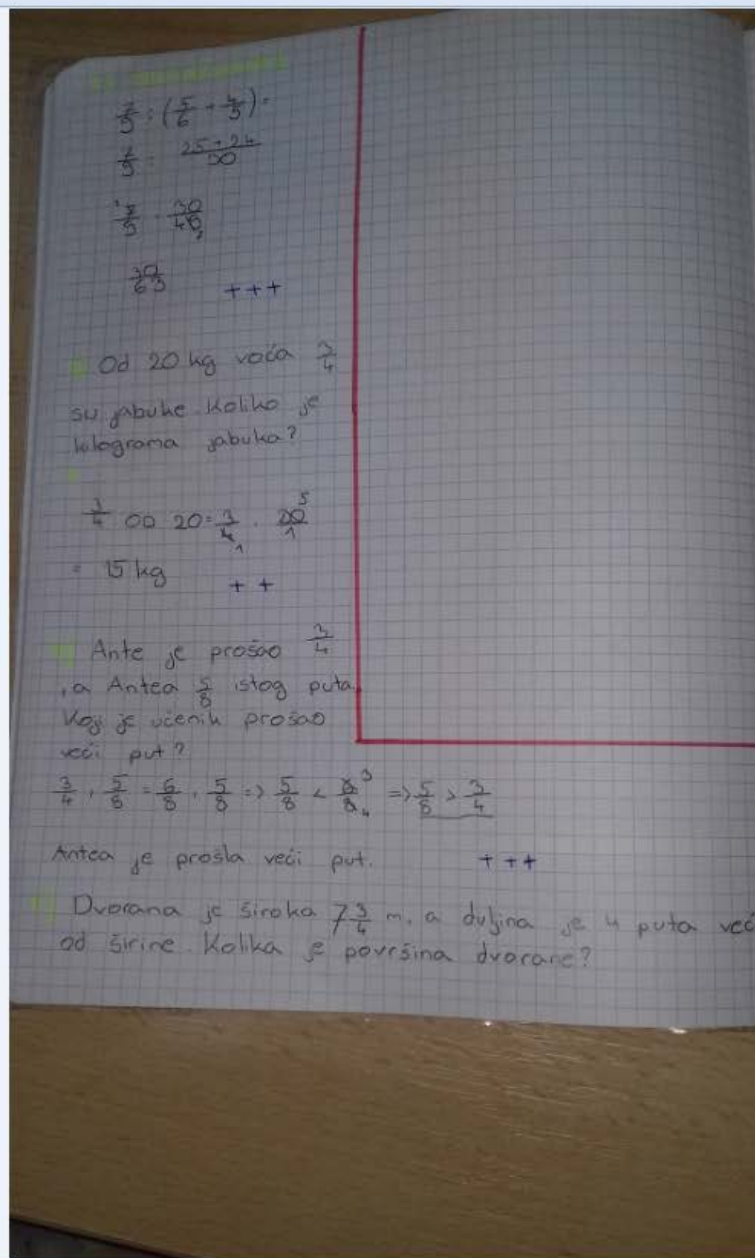 : (5/6 + 4/5) =
: 25+24/30
30/63 +++
Od 20 kg voća 3/4
su jabuke. Koliko je
kilograma jabuka?
3/4 OD 20 = 3/4 1 · 20/1 5
= 15 kg ++
Ante je prošao 3/4
, a Antea 5/8 istog puta.
Koji je učenik prošao
veći put?
3/4 , 5/8 = 6/8 , 5/8 => 5/8 < 6/8 3 4 => 5/8 > 3/4
Antea je prošla veći put. +++
Dvorana je široka 7 3/4 m, a duljina je 4 puta već
od širine. Kolika je površina dvorane?